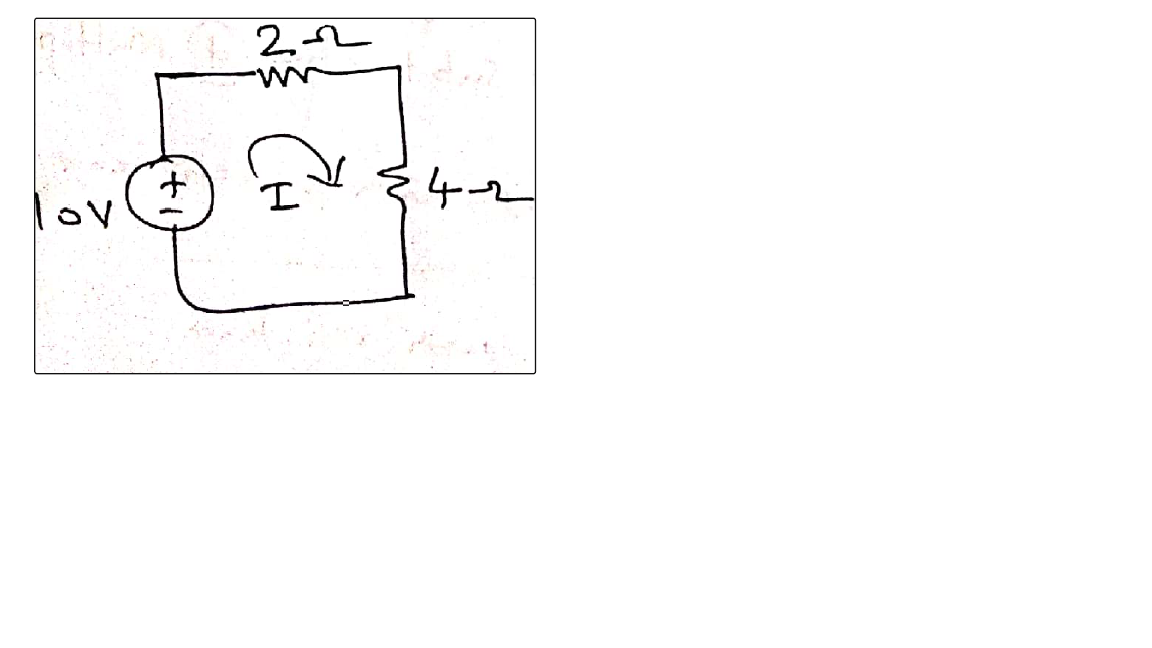 2Ω
+
-
10V
I
4Ω